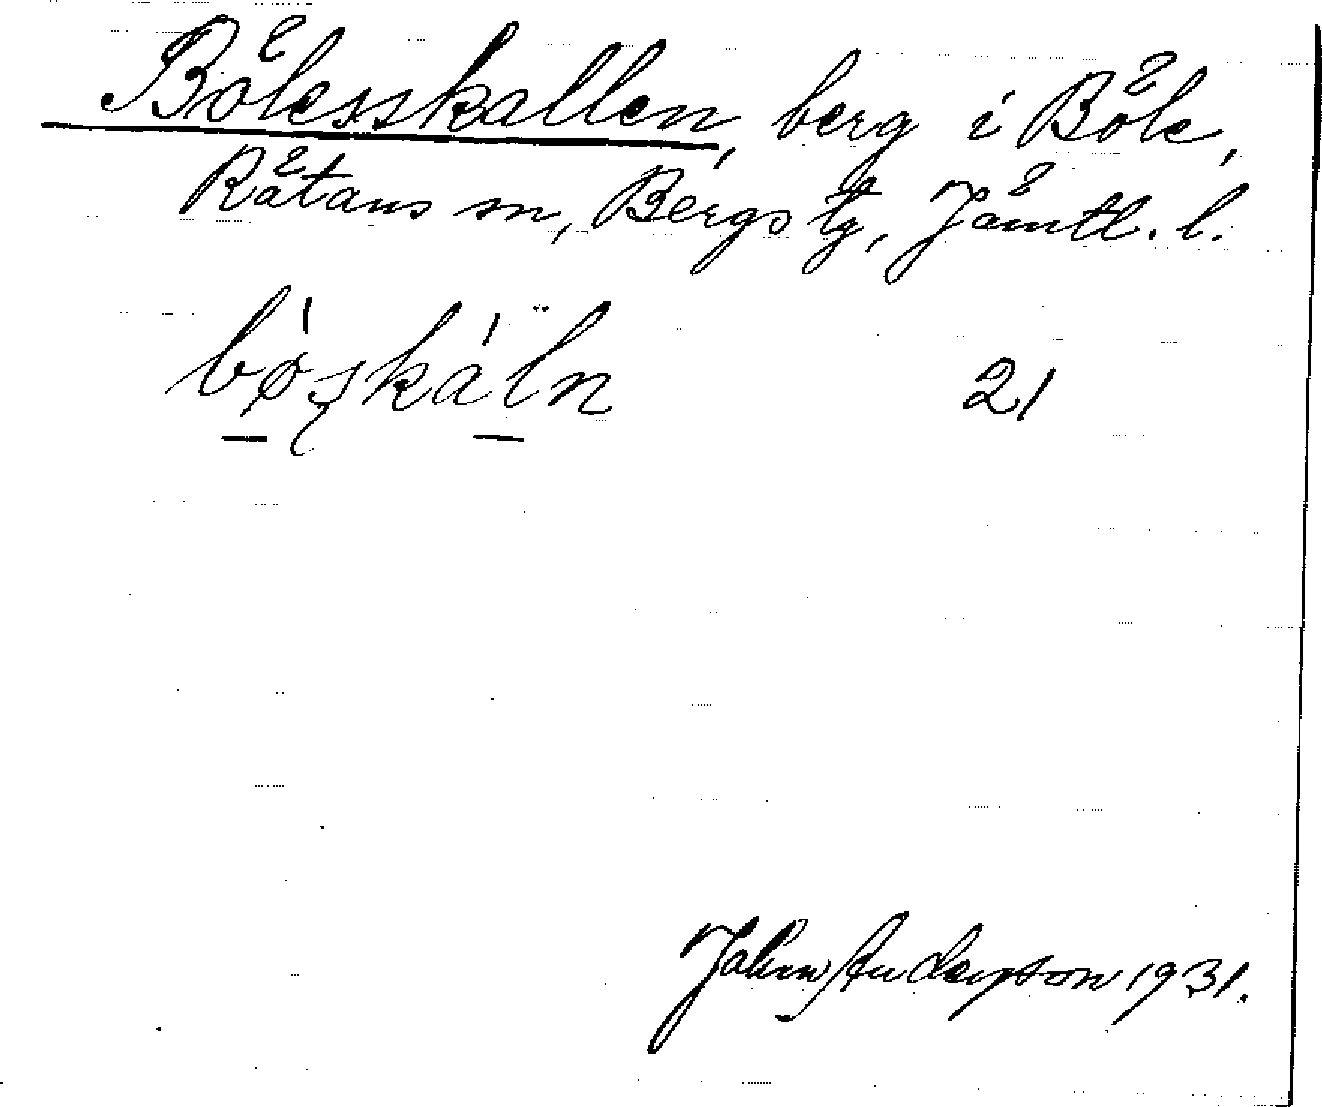 Bölesskallen, berg i Böle,
Rätans sn, Bergs tg, Jämtl. l.
bø̀skáln 21
John Anderson 1931.